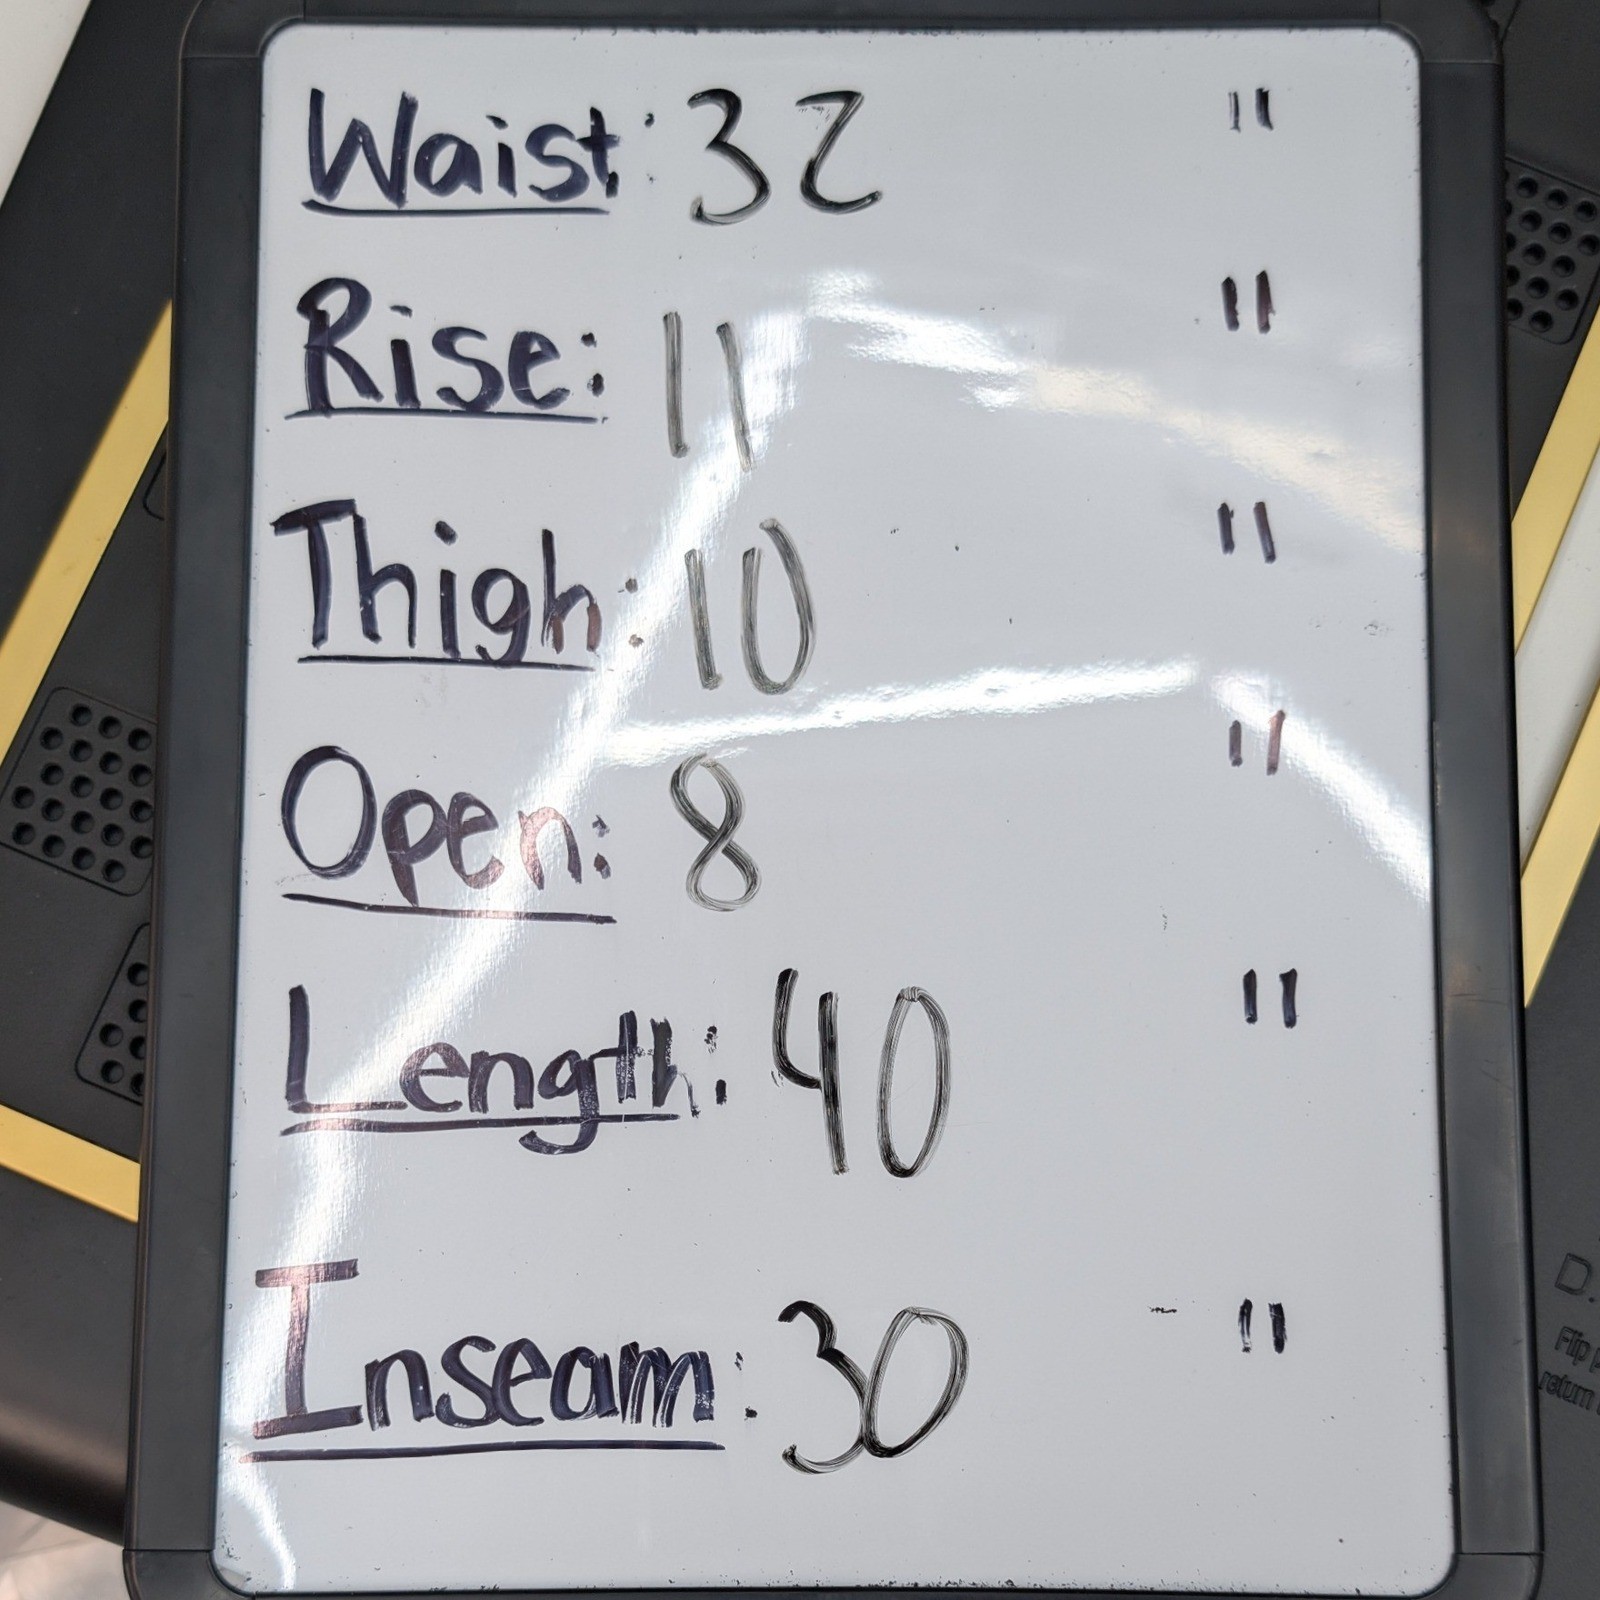 Waist: 32 "
Rise: 11 "
Thigh: 10 "
Open: 8 "
Length: 40 "
Inseam: 30 "
D.
Flip
return